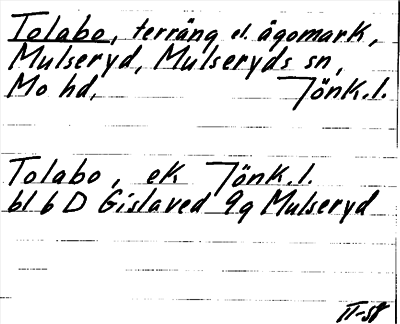 Tolabo, terräng el. ägomark,
Mulseryd, Mulseryds sn,
Mo hd, Jönk.l.
Tolabo, ek Jönk.l.
bl 6 D Gislaved 9g Mulseryd
II-58